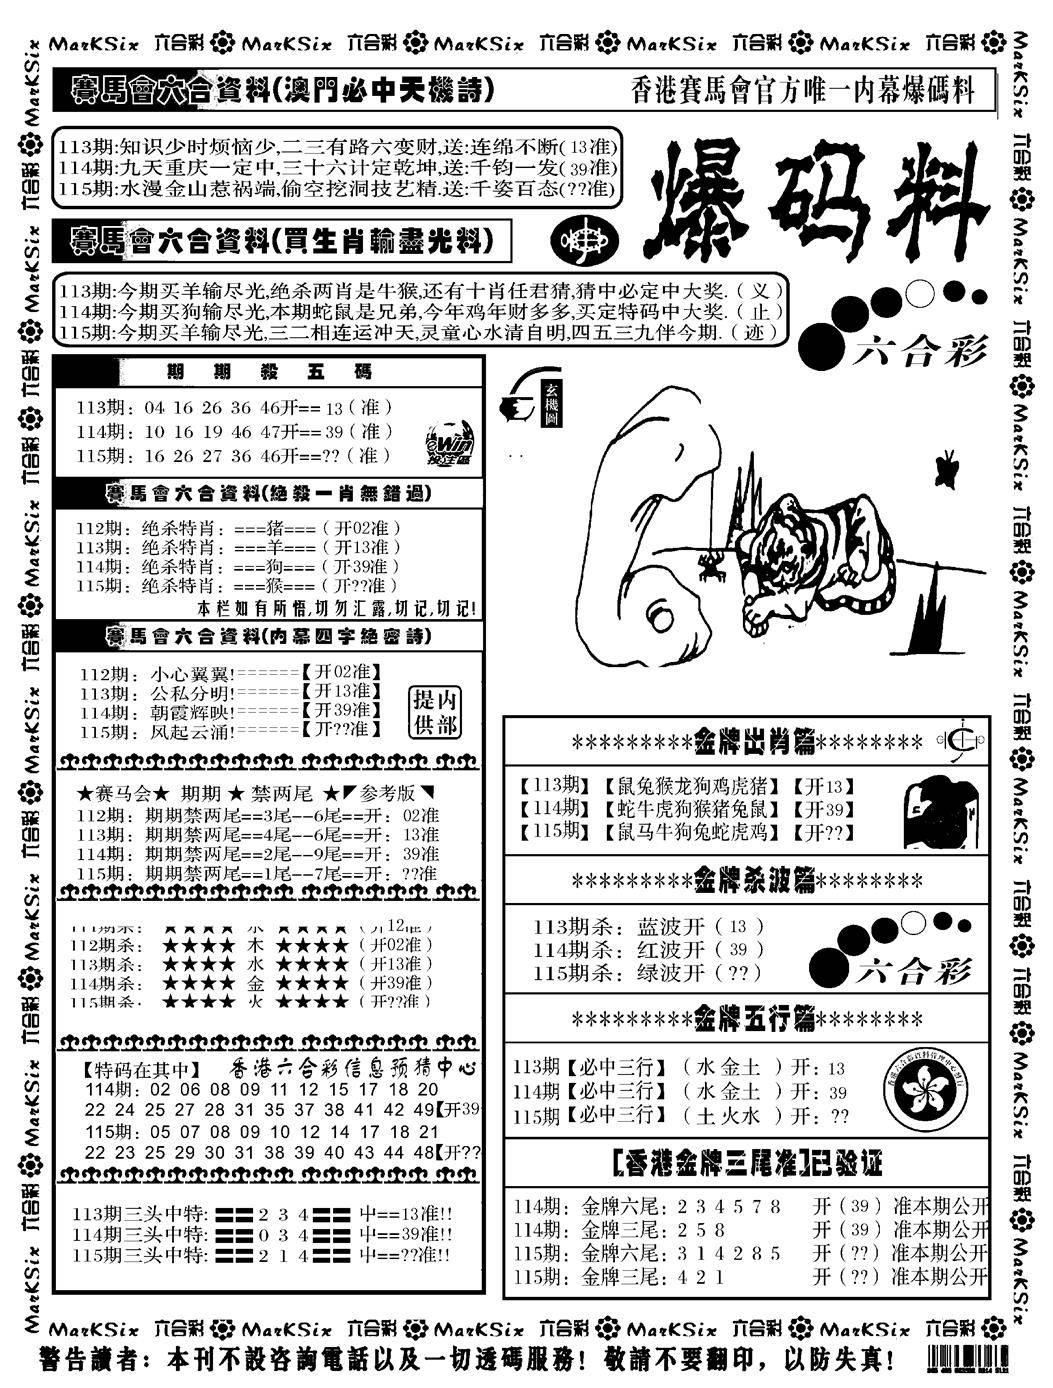 MarKSix 六合彩 MarKSix 六合彩 MarKSix 六合彩 MarKSix 六合彩 MarKSix 六合彩
賽馬會六合資料(澳門必中天機詩)
香港賽馬會官方唯一内幕爆碼料
113期:知识少时烦恼少,二三有路六变财,送:连绵不断(13准)
114期:九天重庆一定中,三十六计定乾坤,送:千钧一发(39准)
115期:水漫金山惹祸端,偷空挖洞技艺精,送:千姿百态(??准)
爆码料
賽馬會六合資料(買生肖輸盡光料)
113期:今期买羊输尽光,绝杀两肖是牛猴,还有十肖任君猜,猜中必定中大奖.(义)
114期:今期买狗输尽光,本期蛇鼠是兄弟,今年鸡年财多多,买定特码中大奖.(止)
115期:今期买羊输尽光,三二相连运冲天,灵童心水清自明,四五三九伴今期.(迹)
六合彩
期期殺五碼
113期: 04 16 26 36 46开==13(准)
114期: 10 16 19 46 47开==39(准)
115期: 16 26 27 36 46开==??(准)
eWin
投注區
玄機圖
賽馬會六合資料(絶殺一肖無錯過)
112期: 绝杀特肖: ===猪===(开02准)
113期: 绝杀特肖: ===羊===(开13准)
114期: 绝杀特肖: ===狗===(开39准)
115期: 绝杀特肖: ===猴===(开??准)
本栏如有所悟,切勿汇露,切记,切记!
賽馬會六合資料(内幕四字絶密詩)
112期: 小心翼翼!======【开02准】
113期: 公私分明!======【开13准】
114期: 朝霞辉映!======【开39准】
115期: 风起云涌!======【开??准】
内部提供
★赛马会★ 期期 ★ 禁两尾 ★◤参考版◥
112期: 期期禁两尾==3尾--6尾==开: 02准
113期: 期期禁两尾==4尾--6尾==开: 13准
114期: 期期禁两尾==2尾--9尾==开: 39准
115期: 期期禁两尾==1尾--7尾==开: ??准
111期杀: ★★★★ 水 ★★★★(开12准)
112期杀: ★★★★ 木 ★★★★(开02准)
113期杀: ★★★★ 水 ★★★★(开13准)
114期杀: ★★★★ 金 ★★★★(开39准)
115期杀: ★★★★ 火 ★★★★(开??准)
【特码在其中】 香港六合彩信息预猜中心
114期: 02 06 08 09 11 12 15 17 18 20
22 24 25 27 28 31 35 37 38 41 42 49【开39
115期: 05 07 08 09 10 12 14 17 18 21
22 23 25 29 30 31 38 39 40 43 44 48【开??
113期三头中特:〓〓2 3 4〓〓中==13准!!
114期三头中特:〓〓0 3 4〓〓中==39准!!
115期三头中特:〓〓2 1 4〓〓中==??准!!
*********金牌出肖篇********
【113期】【鼠兔猴龙狗鸡虎猪】【开13】
【114期】【蛇牛虎狗猴猪兔鼠】【开39】
【115期】【鼠马牛狗兔蛇虎鸡】【开??】
*********金牌杀波篇********
113期杀: 蓝波开(13)
114期杀: 红波开(39)
115期杀: 绿波开(??)
六合彩
*********金牌五行篇********
113期【必中三行】(水金土)开: 13
114期【必中三行】(水金土)开: 39
115期【必中三行】(土火水)开: ??
[香港金牌三尾准]已验证
114期: 金牌六尾: 2 3 4 5 7 8 开(39)准本期公开
114期: 金牌三尾: 2 5 8 开(39)准本期公开
115期: 金牌六尾: 3 1 4 2 8 5 开(??)准本期公开
115期: 金牌三尾: 4 2 1 开(??)准本期公开
MarKSix 六合彩 MarKSix 六合彩 MarKSix 六合彩 MarKSix 六合彩 MarKSix 六合彩
警告讀者: 本刊不設咨詢電話以及一切透碼服務! 敬請不要翻印, 以防失真!